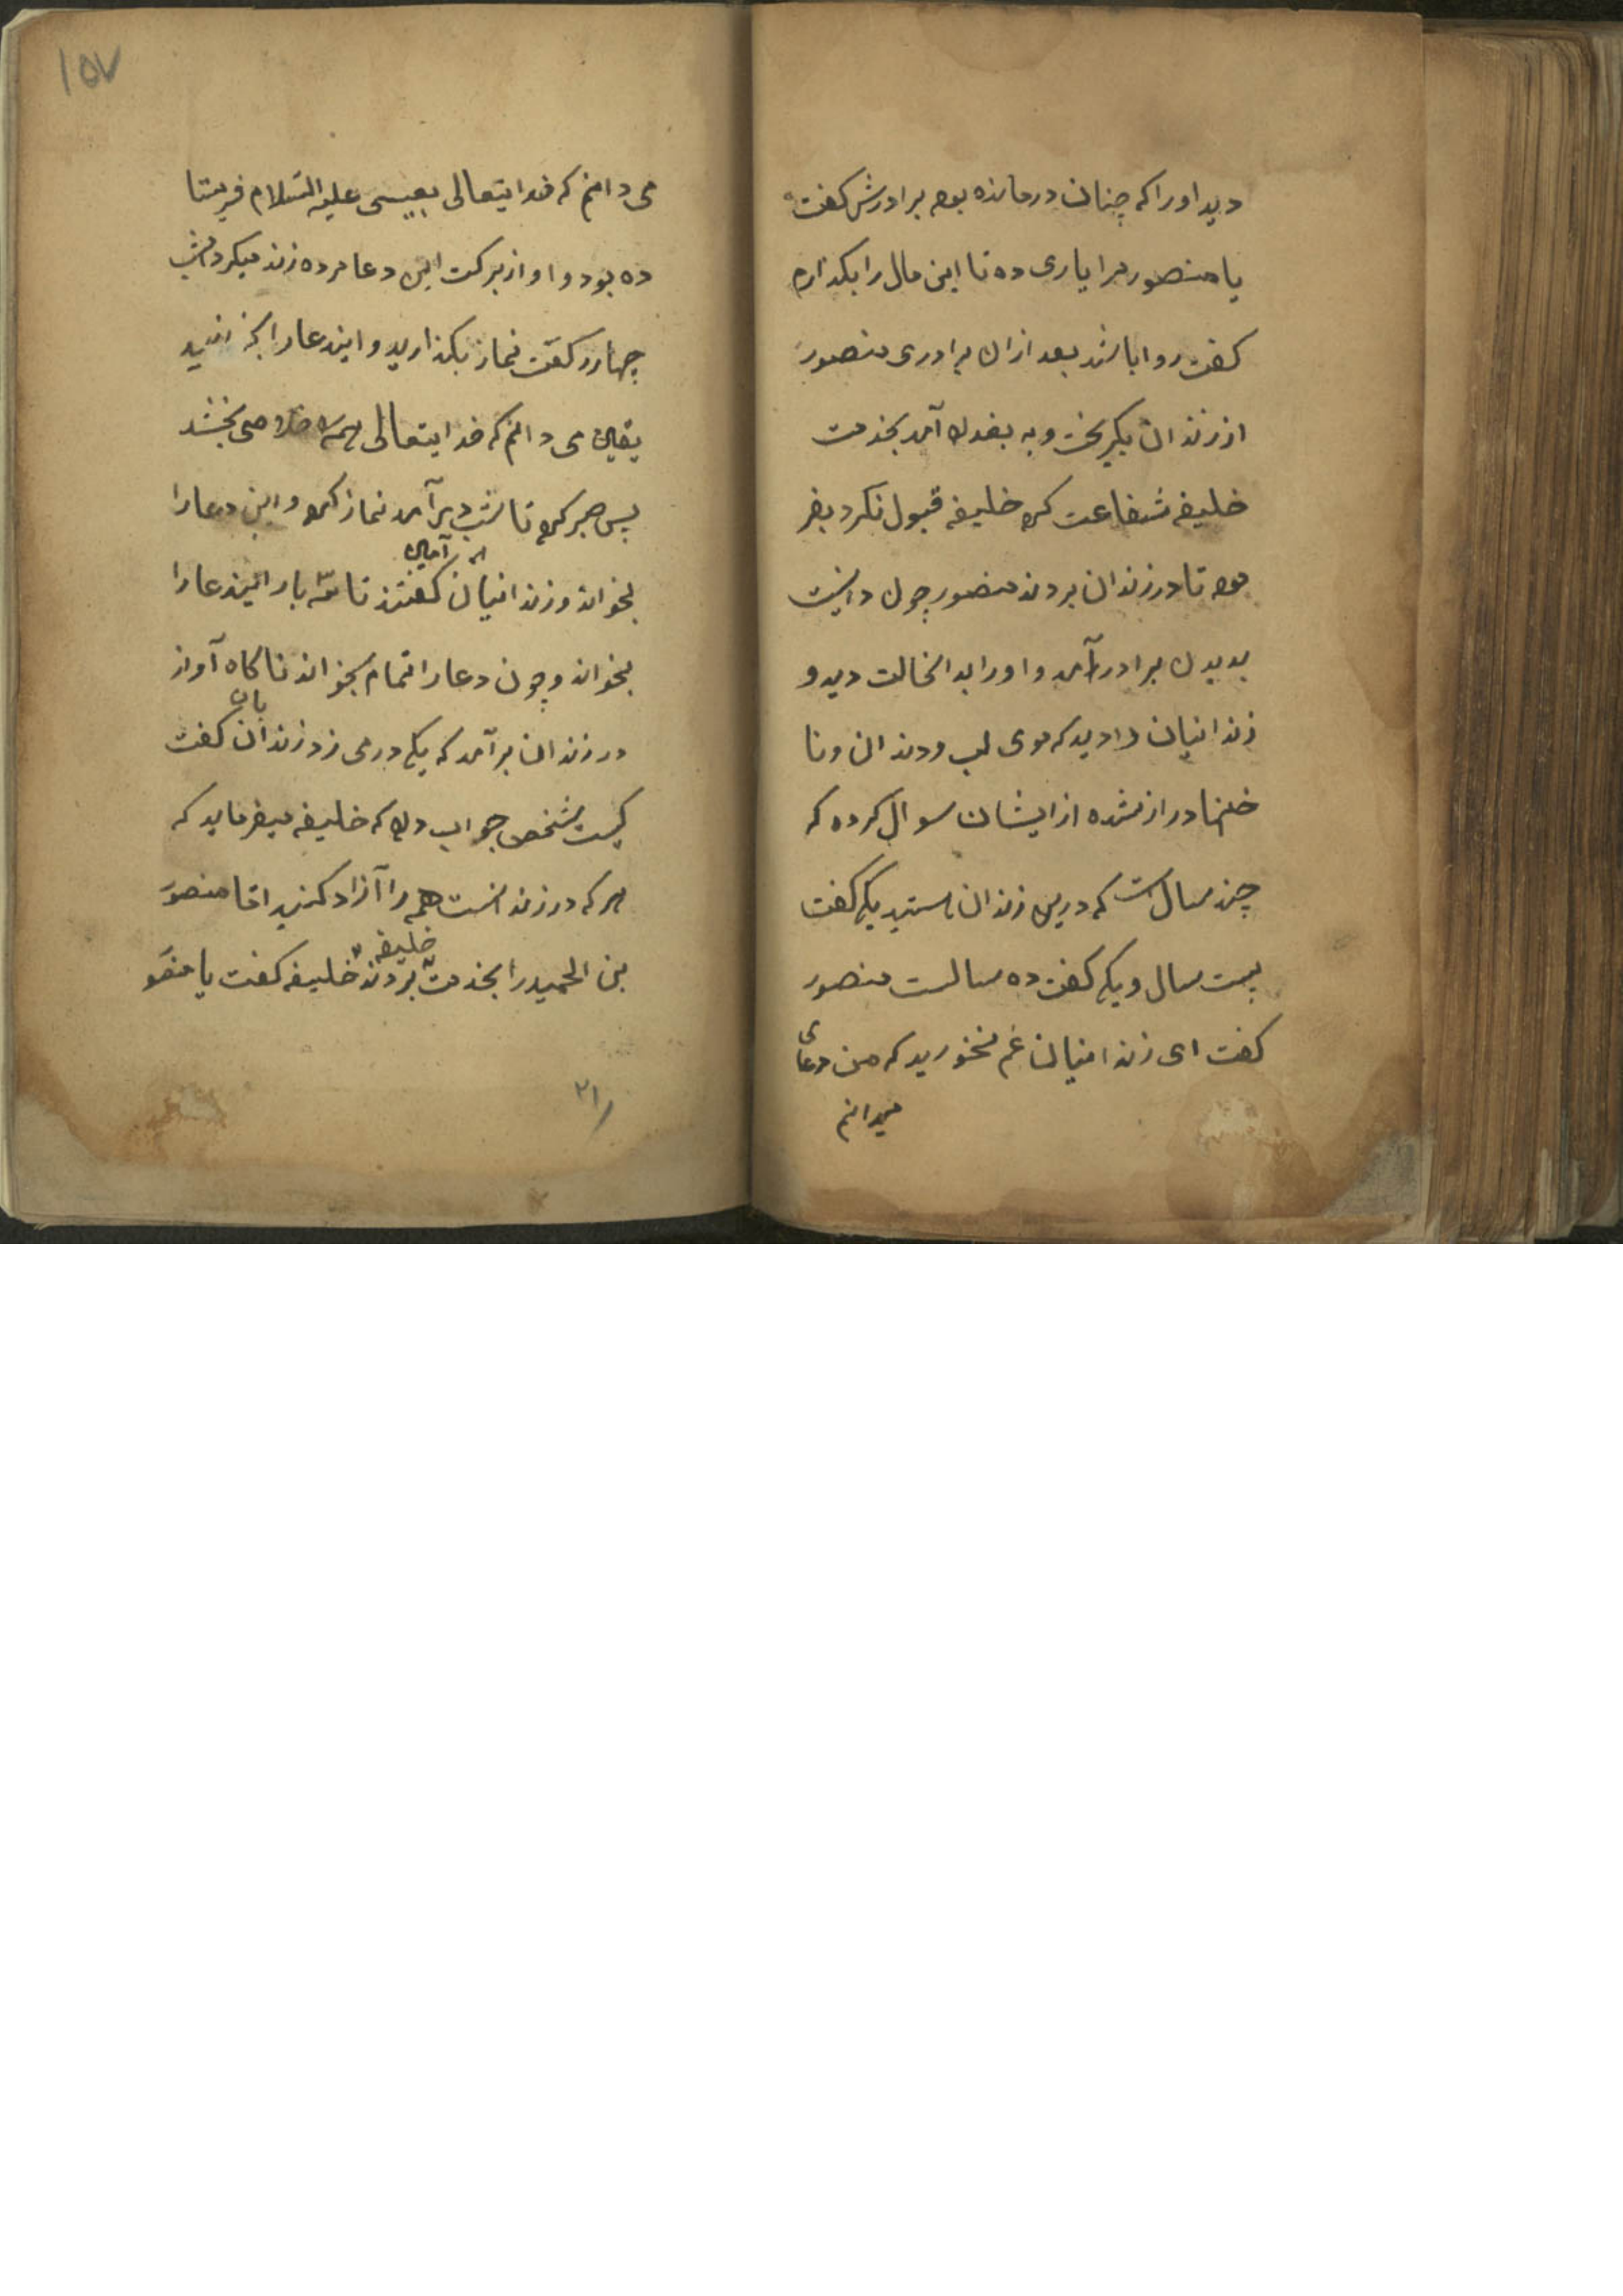 دید اورا که چنان درمانده بود برادرش گفت
یا منصور مرا یاری ده تا این مال را بگذارم
گفت روا باشد بعد ازان برادری منصور
از زندان بگریخت و به بغداد آمد بخدمت
خلیفه شفاعت کرد خلیفه قبول نکرد بفر
مود تا در زندان بردند منصور چون دانست
بدیدن برادر آمد و اورا بدانحالت دید و
زندانیان را دید که موی لب و دندان و نا
خنها دراز شده از ایشان سوال کرده که
چند سال است که درین زندان هستید یکی گفت
بیست سال و یکی گفت ده سالست منصور
گفت ای زندانیان غم مخورید که من دعای
میدانم
۱۵۷
می دانم که خدایتعالی بعیسی علیه السلام فریستا
ده بود و او از برکت این دعا مرده زنده میکرد امشب
چهار رکعت نماز بگذارید و ایندعا را بخوانید
یقین می دانم که خدایتعالی همه را خلاصی بخشد
پس صبر کرد تا شب دیر آمد نماز کرد و این دعا را
بخواند و زندانیان آمین گفتند تا سه بار ایندعا را
بخواند و چون دعا را تمام بخواند ناگاه آواز
در زندان برآمد که یکی در می زد زندان بان گفت
کیست شخص جواب داد که خلیفه میفرماید که
هر که در زندانست همه را آزاد کنید اما منصور
بن الحمید را بخدمت خلیفه بردند خلیفه گفت یا منصو
۲۱